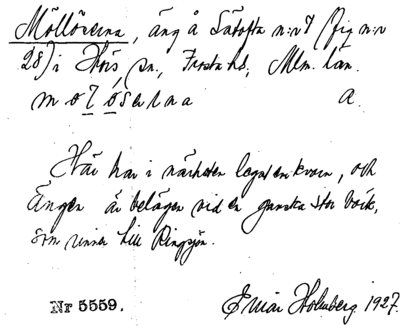 Möllörena, äng å Sätofta n:r 7 (fig n:r
28) i Hörs sn., Frosta hd., Mlm. län.
a.
Här har i närheten legat en kvarn, och
Ängen är belägen vid en ganska stor bäck,
som rinner till Ringsjön.
Nr 5559.
Einar Holmberg 1927.